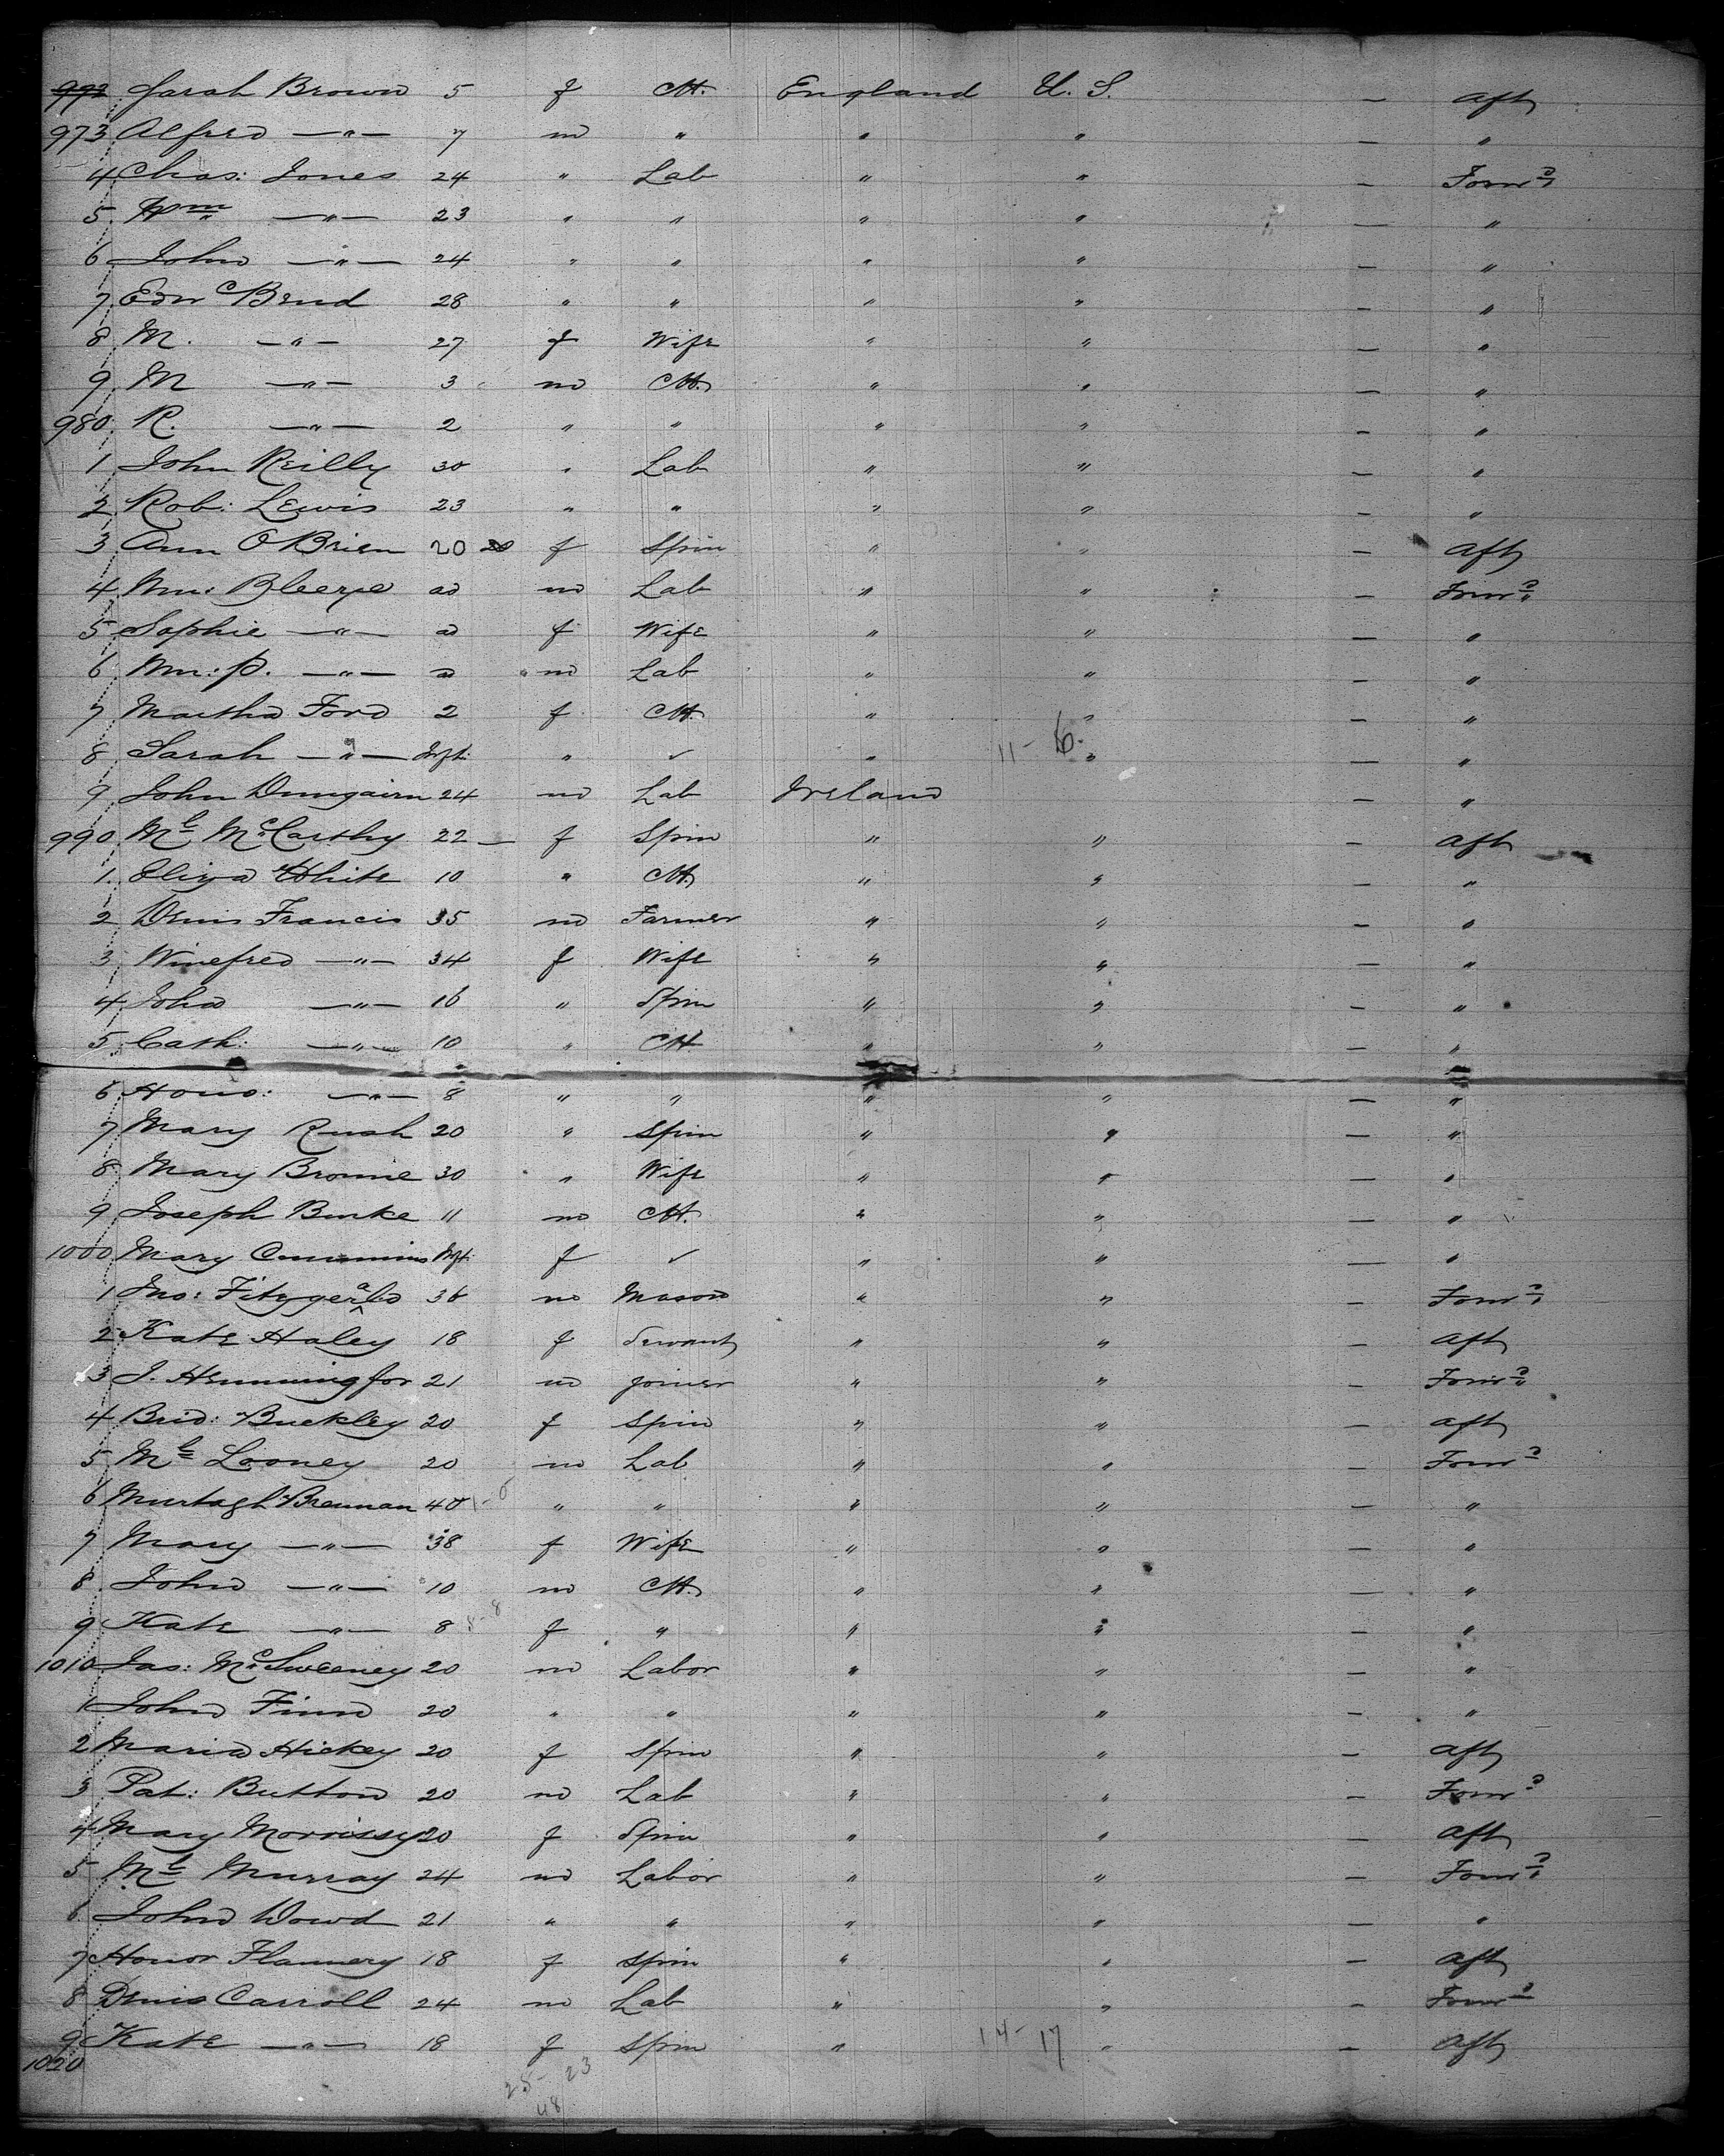 992 Sarah Brown 5 f Ch. England U. S. — Aft
973 Alfred —"— 7 m " " " — "
4 Chas: Jones 24 " Lab " " — Forwd
5 Wm —"— 23 " " " " — "
6 John —"— 24 " " " " — "
7 Edw 28 " " " " — "
8 M. —"— 27 f Wife " " — "
9 M —"— 3 m Ch. " " — "
980 R. —"— 2 " " " " — "
1 John Reilly 30 " Lab " " — "
2 Rob: Lewis 23 " " " " — "
3 Ann O'Brien 20 20 f Spin " " — Aft
4 Wm: Bleeze ad m Lab " " — Forwd
5 Sophie —"— ad f Wife " " — "
6 Wm: P. —"— ad m Lab " " — "
7 Martha Ford 2 f Ch. " " — "
8 Sarah —"— Inft. " ✓ " 11 - 6. " — "
9 John Dungairn 24 m Lab Ireland — "
990 Ml McCarthy 22 — f Spin " " — Aft
1 Eliza White 10 " Ch. " " — "
2 Denis Francis 35 m Farmer " " — "
3 Winefred —"— 34 f Wife " " — "
4 Joha —"— 16 " Spin " " — "
5 Cath: —"— 10 " Ch " " — "
6 Hono: —"— 8 " " " " — "
7 Mary Rush 20 " Spin " " — "
8 Mary Browne 30 " Wife " " — "
9 Joseph Burke 11 m Ch. " " — "
1000 Mary Cummins Inft. f ✓ " " — "
1 Jno: Fitzgerald 36 m Mason " " — Forwd
2 Kate Haley 18 f Servant " " — Aft
3 J. Henningfor 21 m joiner " " — Forwd
4 Brid: Buckley 20 f Spin " " — Aft
5 Ml Looney 20 m Lab " " — Forwd
6 Murtagh Brennan 40 1 - 6 " " " " — "
7 Mary —"— 38 f Wife " " — "
8 John —"— 10 m Ch. " " — "
9 Kate —"— 8 8 - 8 f " " " — "
1010 Jas: McSweeney 20 m Labor " " — "
1 John Finn 20 " " " " — "
2 Maria Hickey 20 f Spin " " — Aft
3 Pat: Button 20 m Lab " " — Forwd
4 Mary Morrissy 20 f Spin " " — Aft
5 Ml Murray 24 m Labor " " — Forwd
6 John Dowd 21 " " " " — "
7 Honor Flannery 18 f Spin " " — Aft
8 Denis Carroll 24 m Lab " " — Forwd
9 Kate —"— 18 f Spin " 14 - 17 " — Aft
1020
25 - 23
48